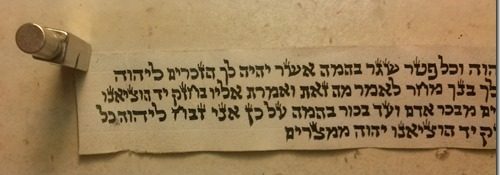 הוה וכל פטר שגר בהמה אשר יהיה לך הזכרים ליהוה
לך בנך מחר לאמר מה זאת ואמרת אליו בחזק יד הוציאנו
ים מבכר אדם ועד בכור בהמה על כן אני זבח ליהוה כל
ק יד הוציאנו יהוה ממצרים